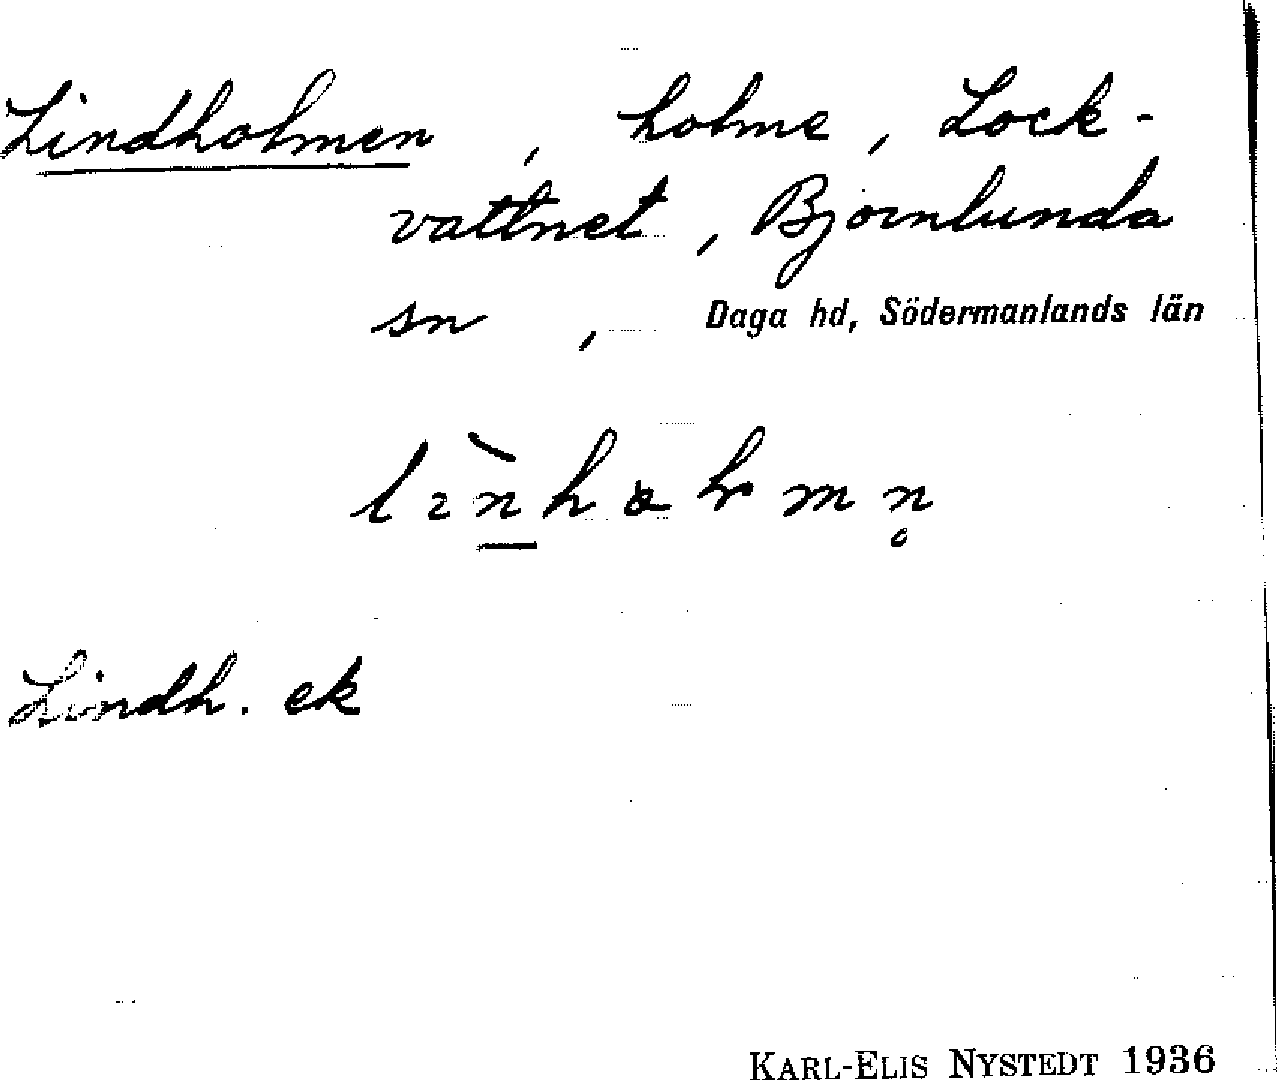 Lindholmen, holme, Lock-
vattnet, Björnlunda
sn, Daga hd, Södermanlands län
Lindh. ek
KARL-ELIS NYSTEDT 1936